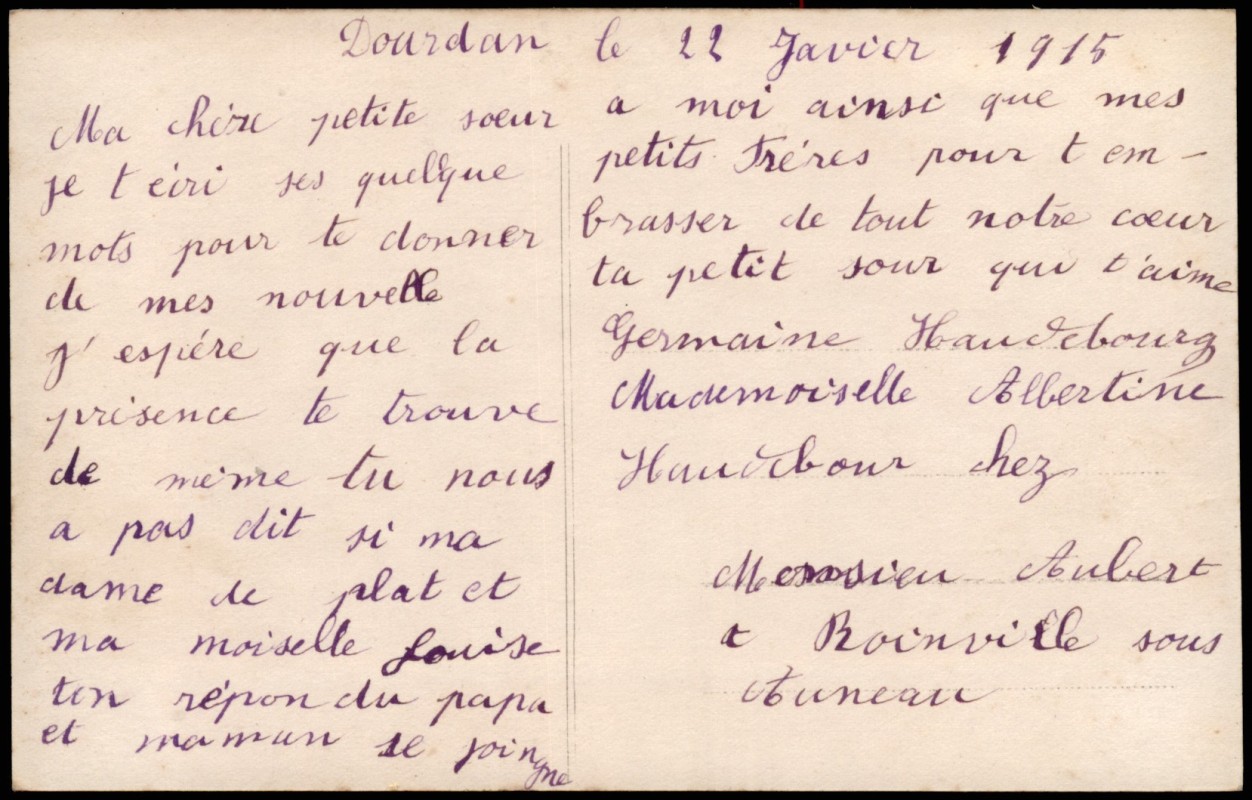 Dourdan le 22 Javier 1915
Ma chére petite soeur
je t éiri ses quelque
mots pour te donner
de mes nouvelle
j' espére que la
présence te trouve
de meme tu nous
a pas dit si ma
dame de plat et
ma moiselle Louise
ton répon du papa
et maman se joingne
a moi ainsi que mes
petits Fréres pour t em-
brasser de tout notre cœur
ta petit sour qui t'aime
Germaine Haudebourg
Mademoiselle Albertine
Haudebour chez
Monsieu Aubert
a Roinville sous
Auneau